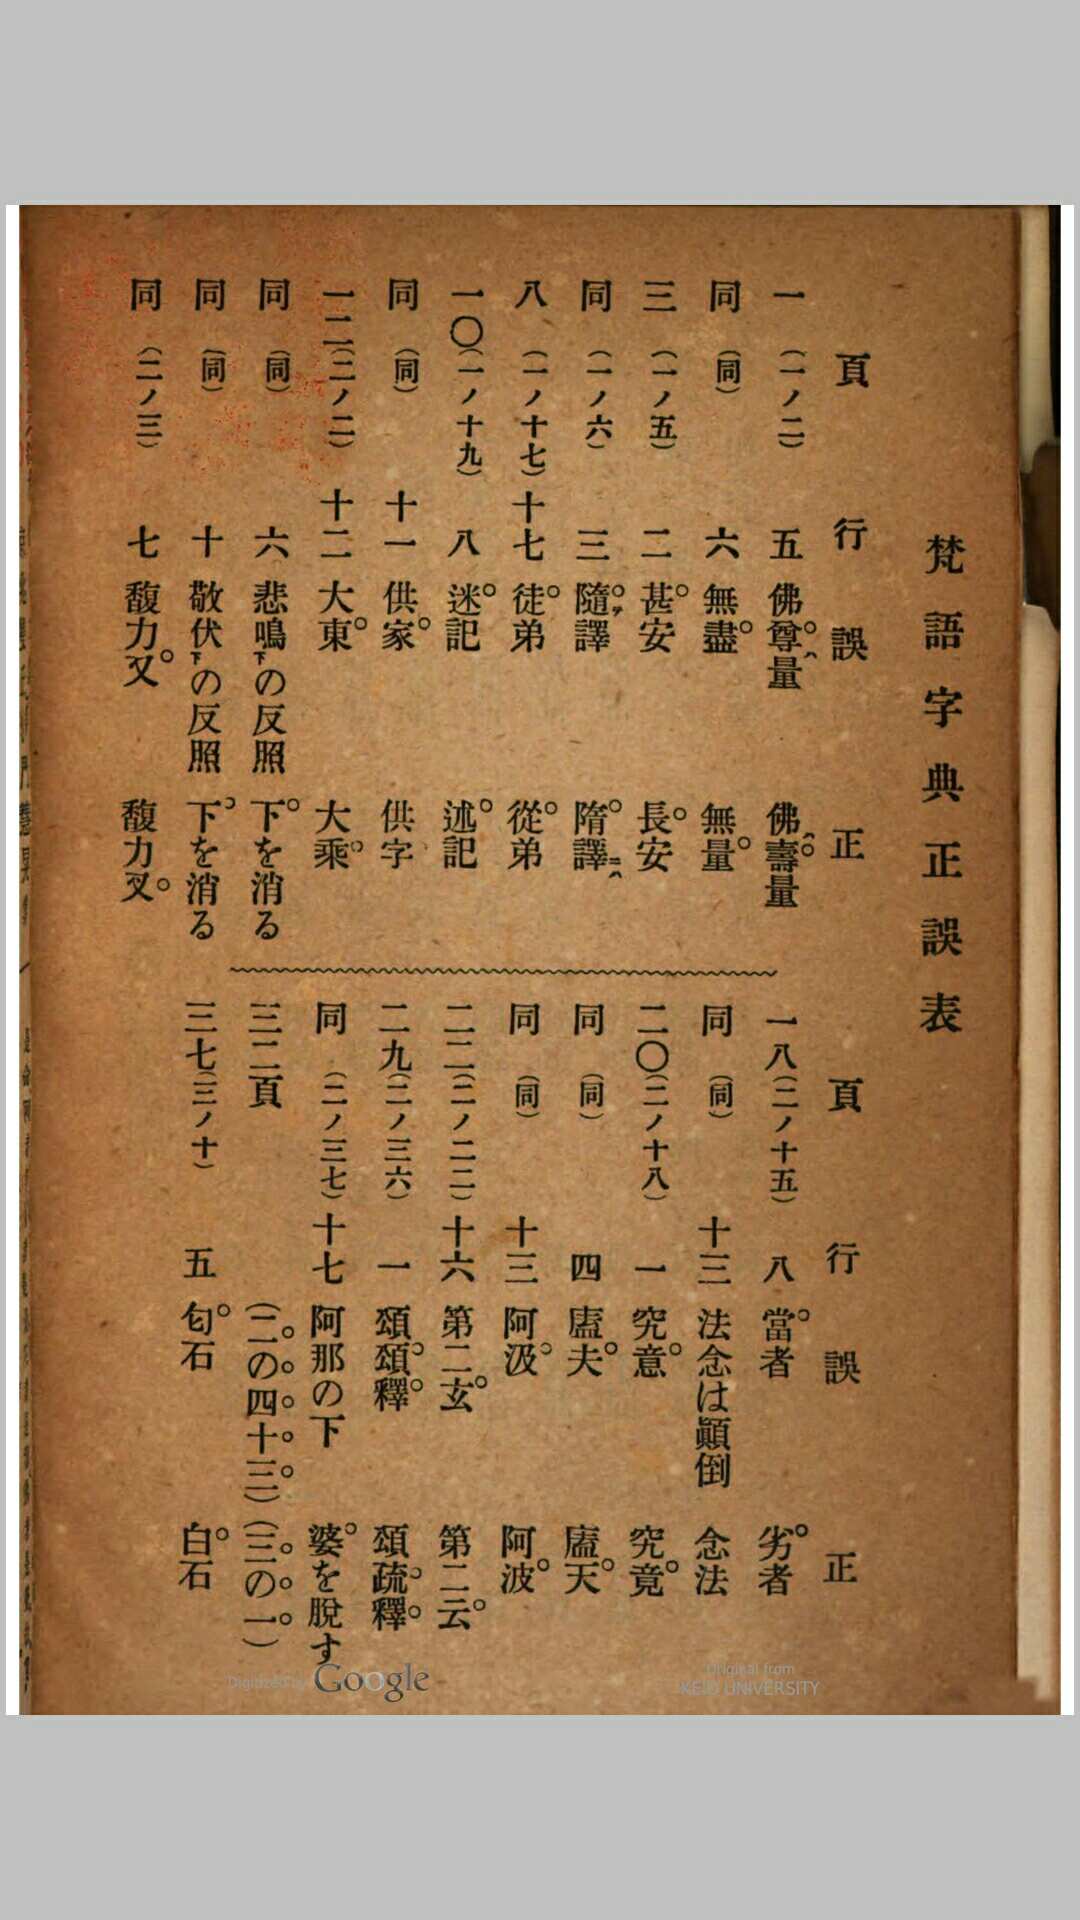 梵語字典正誤表
頁 行 誤 正
一(一ノ二) 五 佛尊量 佛壽量
同(同) 六 無盡 無量
三(一ノ五) 二 甚安 長安
同(一ノ六) 三 隨譯 隋譯
八(一ノ十七) 十七 徒弟 從弟
一〇(一ノ十九) 八 迷記 述記
同(同) 十一 供家 供字
一二(二ノ二) 十二 大東 大乘
同(同) 六 悲鳴下の反照 下を消る
同(同) 十 敬伏下の反照 下を消る
同(二ノ三) 七 馥力又 馥力叉
頁 行 誤 正
一八(二ノ十五) 八 當者 劣者
同(同) 十三 法念は顚倒 念法
二〇(二ノ十八) 一 究意 究竟
同(同) 四 盧夫 盧天
同(同) 十三 阿汲 阿波
二二(二ノ二二) 十六 第二玄 第二云
二九(二ノ三六) 一 頌頌釋 頌疏釋
同(二ノ三七) 十七 阿那の下 婆を脫す
三二頁 (二の四十三) (三の一)
三七(三ノ十) 五 匂石 白石
Digitized by Google
Original from
KEIO UNIVERSITY